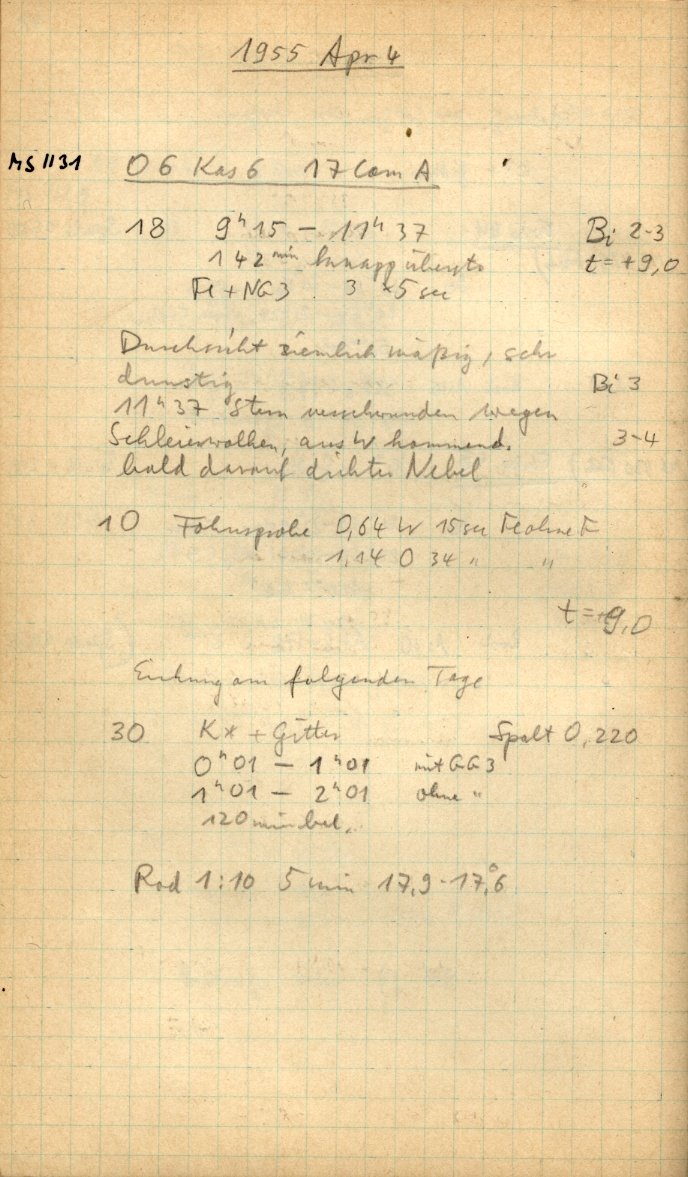 1955 Apr 4
MS 1131 O 6 Kas 6 17 Com A
18 9ʰ15 – 11ʰ37 Bi 2-3
142 min knapp überst. t = +9,0
Fe + NG3 3 × 5 sec
Durchsicht ziemlich mäßig, sehr
dunstig Bi 3
11ʰ37 Stern verschwunden wegen
Schleierwolken, aus W kommend. 3-4
bald darauf dichter Nebel
10 0,64 W 15 sec Fe ohne F
1,14 O 34 " "
t = +9,0
Eichung am folgenden Tage
30 K* + Gitter Spalt 0,220
0ʰ01 – 1ʰ01 mit GG3
1ʰ01 – 2ʰ01 ohne "
120 min bel.
Rod 1:10 5 min 17,9 - 17,°6